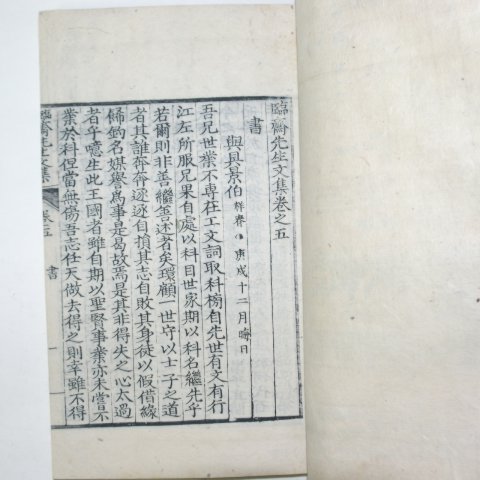 臨齋先生文集卷之五
書
與具景伯 庚戌十二月晦日
吾兄世業不專在工文詞取科榜自先世有文有行
江左所服兄果自處以科目世家期以科名繼先乎
若爾則非善繼善述者矣環顧一世守以士子之道
者其誰奔奔逐逐自損其志自敗其身徒以假借緣
飾釣名媒譽爲事是曷故焉是其非得失之心太過
者乎噫生此王國者雖自期以聖賢事業亦未嘗不
業於科徑當無傷吾志任天做去得之則幸雖不得
臨齋先生文集 卷五 書 一